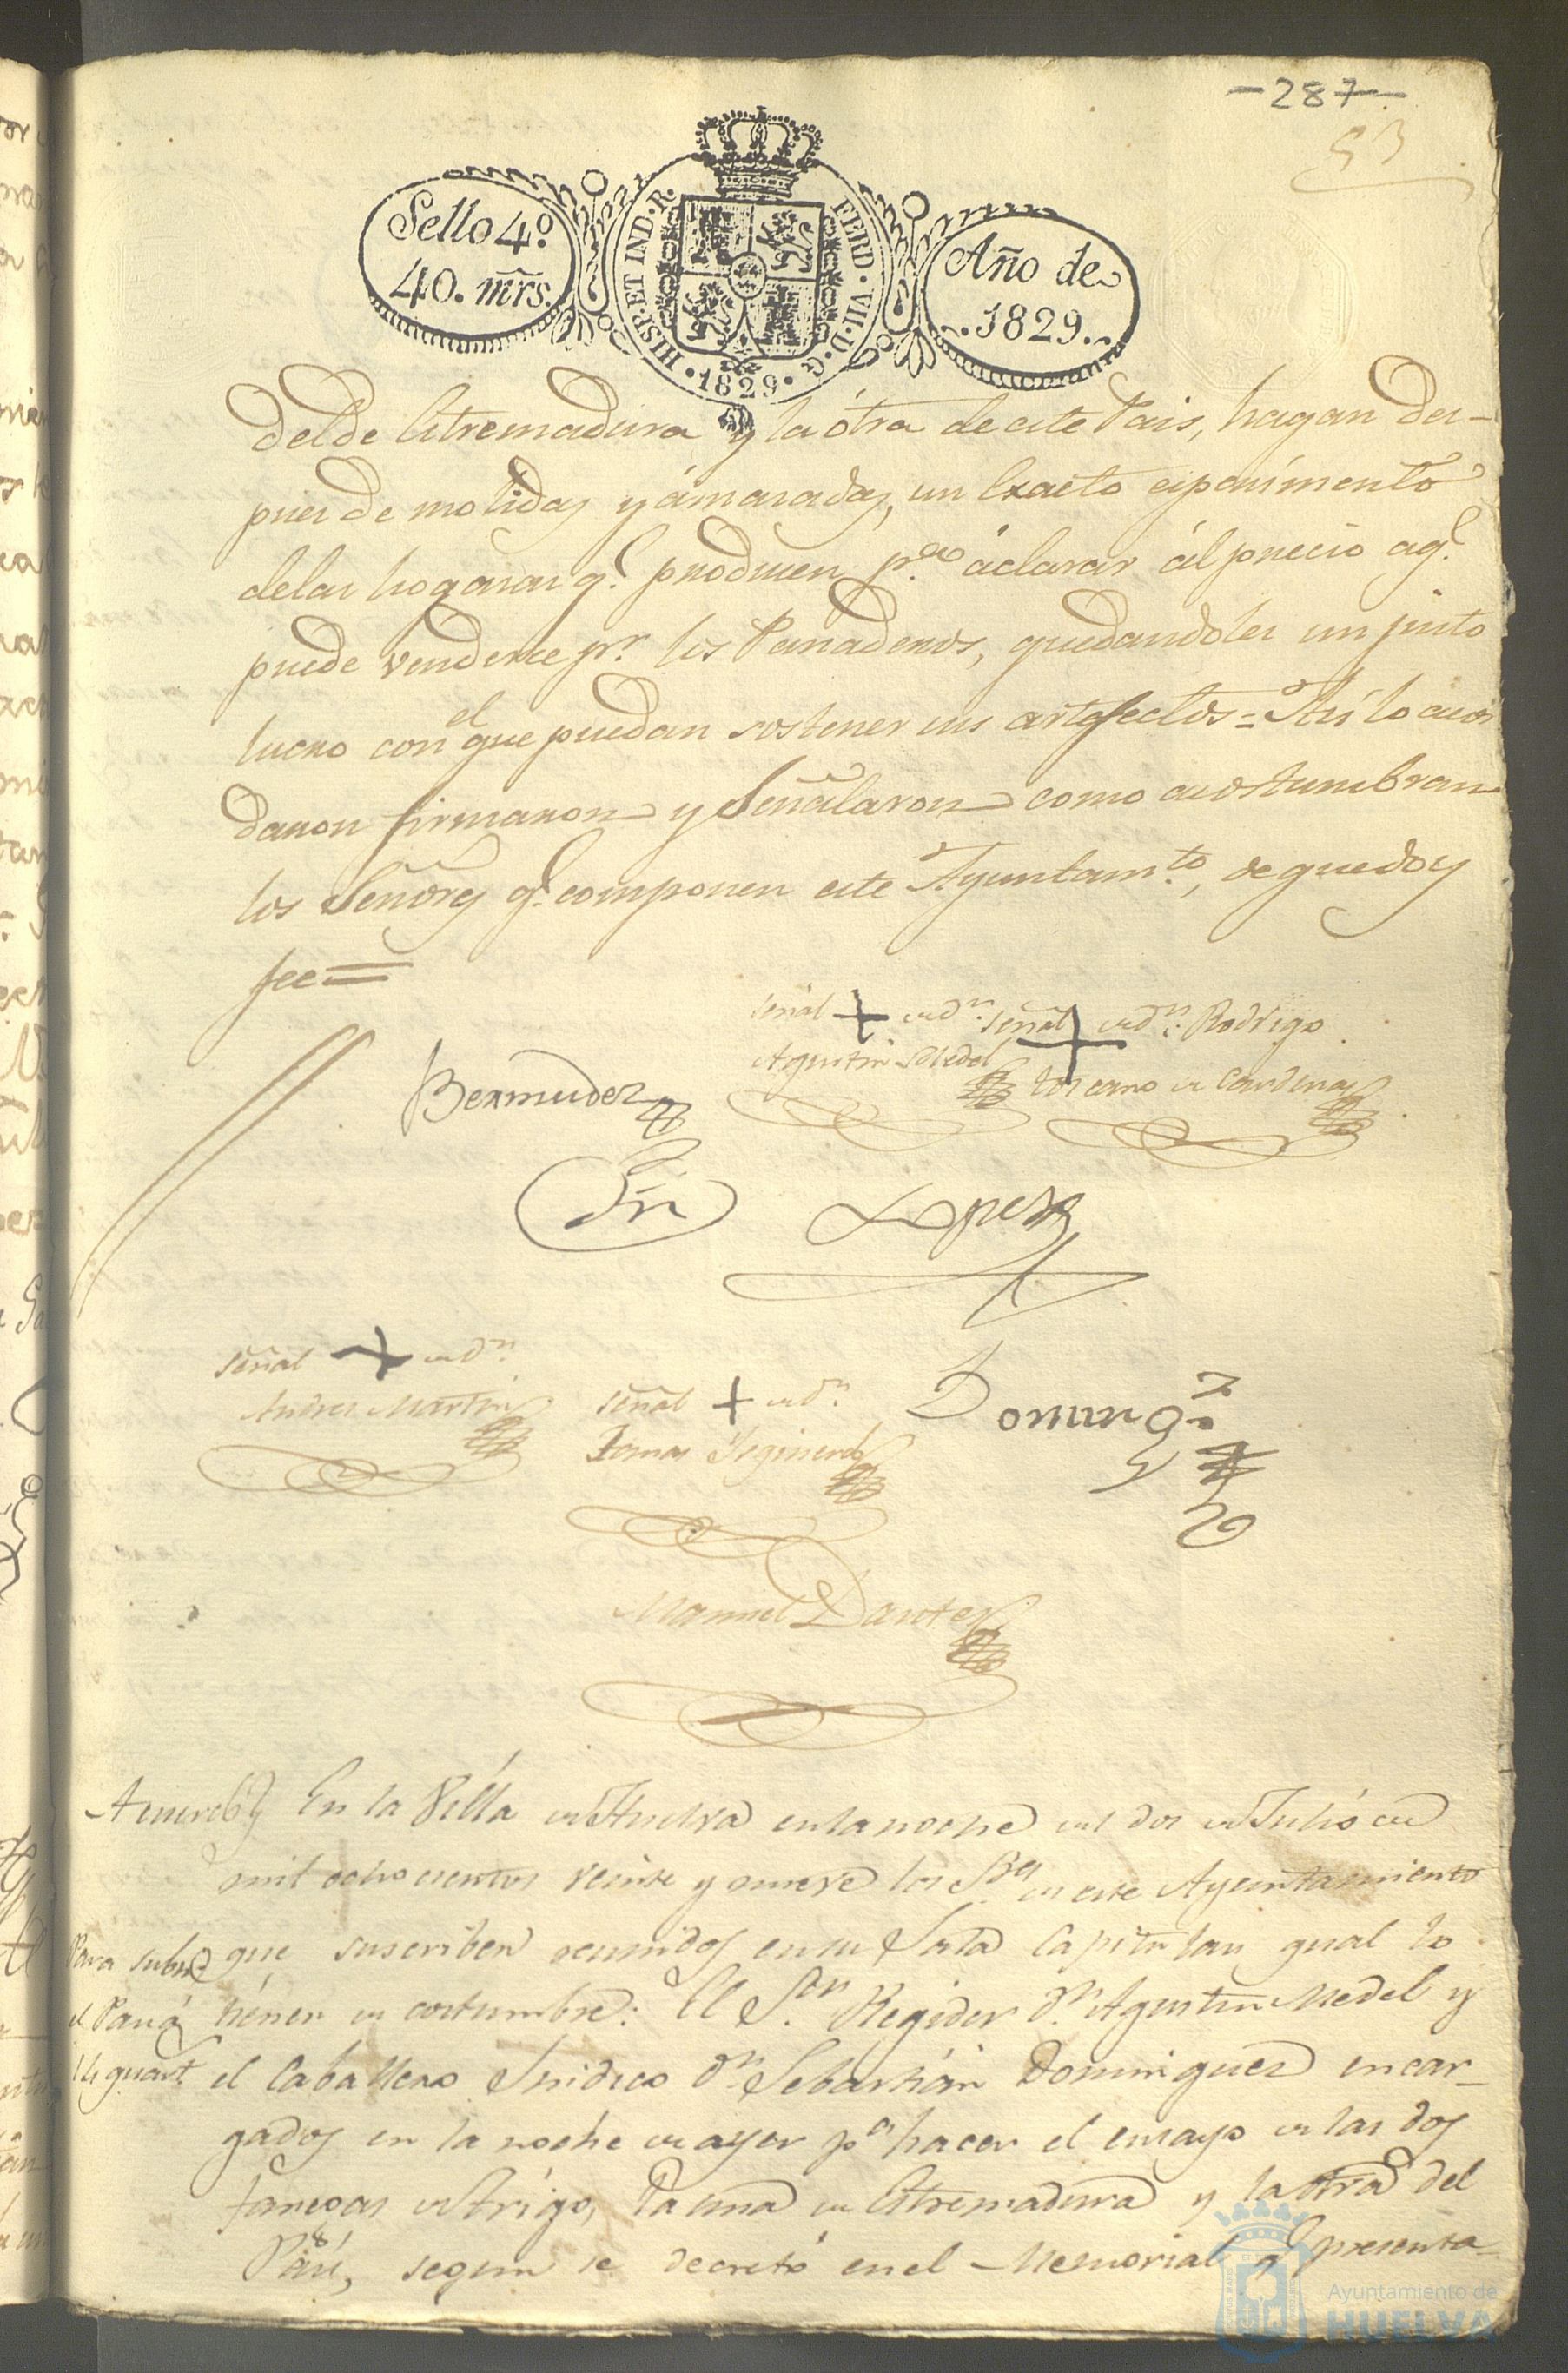 -287-
53
Sello 4º
40. mrs.
HISP. ET IND. R. FERD. VII. D. G. 1829.
Año de
1829.
delde Estremadura y la ótra de este Pais, hagan des-
pues de molidas y ámasadas, un Exacto esperimento
de las hogasas q.e producen p.a áclarar ál precio aq.e
puede venderce p.r los Panaderos, quedandoles un justo
lucro con el que puedan sostener sus artefectos = Asi lo acor
daron firmaron y Señalaron como acostumbran
los Señores q.e componen este Ayuntam.to, de que doy
fee =
Señal + de D.n
Agustin Medel
Señal + de D.n Rodrigo
Toscano de Cardenas
Bermudez
Lopez
Señal + de D.n
Andres Martin
Señal + de D.n
Tomas
Doming.z
Manuel Dantes
Acuerdo En la Villa de Huelva en la noche del dos de Julio de
mil ochocientos veinte y nueve los S.res de este Ayuntamiento
Para subir que suscriben reunidos en su Sala Capitular qual lo
el Pan á tienen de costumbre: El S.or Regidor D.n Agustin Medel y
quart. el Caballero Sindico D.n Sebastián Dominguez encar-
gados en la noche de ayer p.a hacer el ensayo de las dos
fanegas de trigo, la una de Estremadura y la otra del
Païs, segun se decretó en el Memorial q.e presenta-
Ayuntamiento de
HUELVA